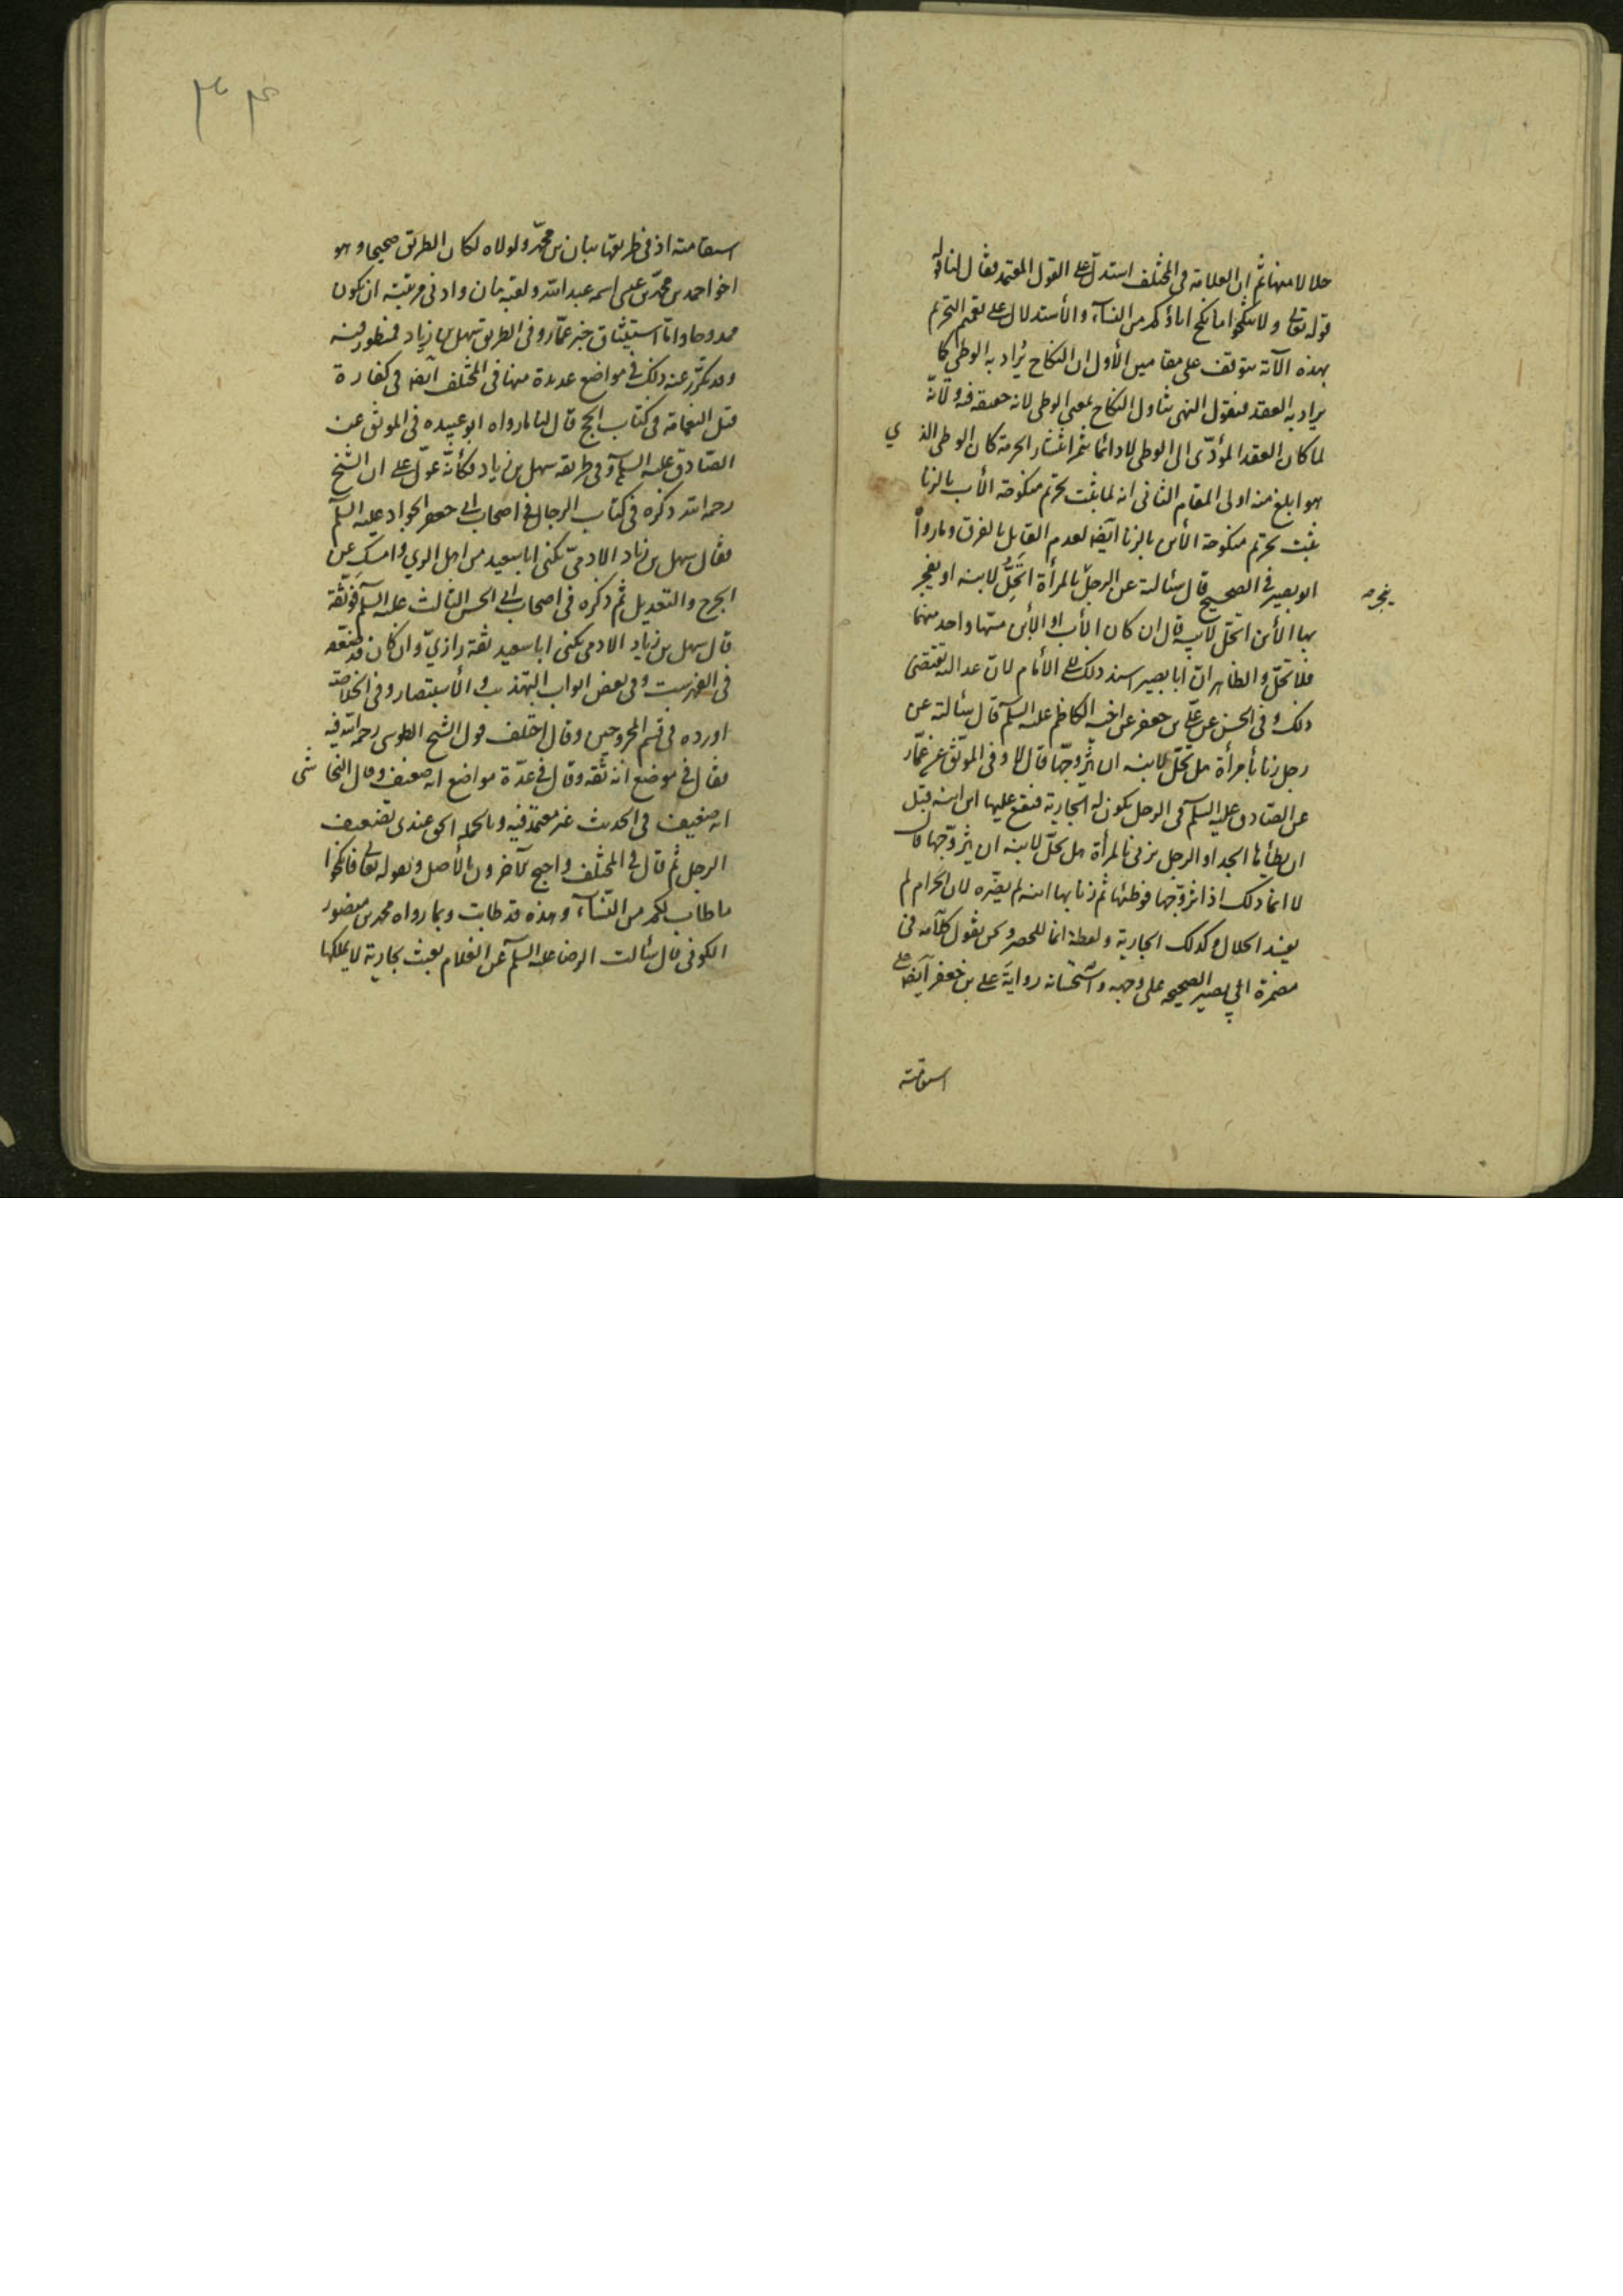 حلالا منها ثم ان العلامة في المختلف استدل على القول المعتمد فقال لنا
قوله تعالى ولا تنكحوا ما نكح اباؤكم من النساء والأستدلال على تعميم التحريم
بهذه الآية يتوقف على مقامين الأول ان النكاح يراد به الوطي كما
يراد به العقد فنقول النهى يتناول النكاح بمعنى الوطى لانه حقيقة فيه ولأنه
لما كان العقد المؤدّى الى الوطى لا دائما يثمر انتشار الحرمة كان الوطى الذي
هو ابلغ منه اولى المقام الثانى انه لما يثبت تحريم منكوحة الأب بالزنا
يثبت تحريم منكوحة الأبن بالزنا ايضا لعدم القايل بالفرق وما رواه
ابو بصير في الصحيح قال سئالته عن الرجل بالمرأة اتحل لابنه او يفجر
يفجر صح
بها الأبن اتحل لأبيه قال ان كان الأب او الأبن مسّها واحد منهما
فلا تحلّ والظاهر ان ابا بصير اسند ذلك الى الأمام لان عدالته تقتضى
ذلك وفى الحسن عن على بن جعفر عن اخيه الكاظم عليه السلم قال سئالته عن
رجل زنا بأمرأة هل تحلّ لابنه ان يتزوجّها قال لا وفى الموثق عن عمّار
عن الصادق عليه السلم فى الرجل يكون له الجارية فيقع عليها ابن ابنه قبل
ان يطأها الجد او الرجل يزنى بالمرأة هل يحلّ لابنه ان يتزوّجها قال
لا انما ذلك اذا تزوّجها فوطئها ثم زنا بها ابنه لم يضرّه لان الحرام لم
يفسد الحلال وكذلك الجارية ولفظة انما للحصر ونحن نقول كلامه فى
مضمرة ابي بصير الصحيحه على وجهه واستحسانه رواية على بن جعفر ايضا على
استقامته
استقامته اذ فى طريقها بنان بن محمّد ولولاه لكان الطريق صحيحا وهو
اخو احمد بن محمّد بن عيسى اسمه عبد الله ولقبه بنان وادنى مرتبته ان يكون
ممدوحا وامّا استيثاق خبر عمّار وفى الطريق سهل بن زياد فمنظور فيه
وقد تكرّر عنه ذلك في مواضع عديدة منها فى المختلف ايضا فى كفارة
قتل النعامة فى كتاب الحج قال لنا ما رواه ابو عبيده فى الموثق عن
الصّادق عليه السلم وفى طريقه سهل بن زياد فكأنّه عوّل على ان الشيخ
رحمه الله ذكره فى كتاب الرجال فى اصحاب ابى جعفر الجواد عليه السلم
فقال سهل بن زياد الادمىّ يكنى ابا سعيد من اهل الري وامسك عن
الجرح والتعديل ثم ذكره فى اصحاب ابى الحسن الثالث عليه السلم فوثّقه
قال سهل بن زياد الادمى يكنى ابا سعيد ثقة رازيّ وان كان قد ضعّفه
فى الفهرست وفى بعض ابواب التهذيب والأستبصار وفى الخلاصة
اورده فى قسم المجروحين وقال اختلف قول الشيخ الطوسى رحمه الله فيه
فقال فى موضع انه ثقه وقال فى عدّة مواضع انه ضعيف وقال النجاشى
انه ضعيف فى الحديث غير معتمد فيه وبالجمله الحق عندى تضعيف
الرجل ثم قال فى المختلف واحتج الآخرون بالأصل وبقوله تعالى فانكحوا
ما طاب لكم من النّساء وهذه قد طابت وبما رواه محمد بن منصور
الكوفى قال سئالت الرضا عليه السلم عن الغلام يعبث بجارية لا يملكها